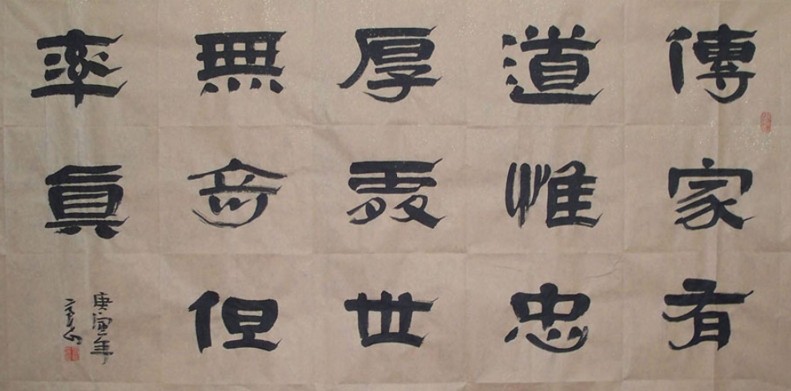 傳家有
道惟忠
厚處世
無奇但
率真
庚寅年